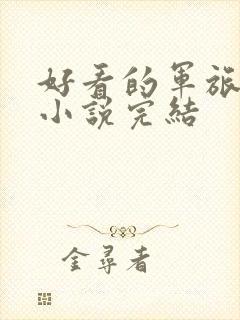 好看的軍旅
小說完結
金尋者